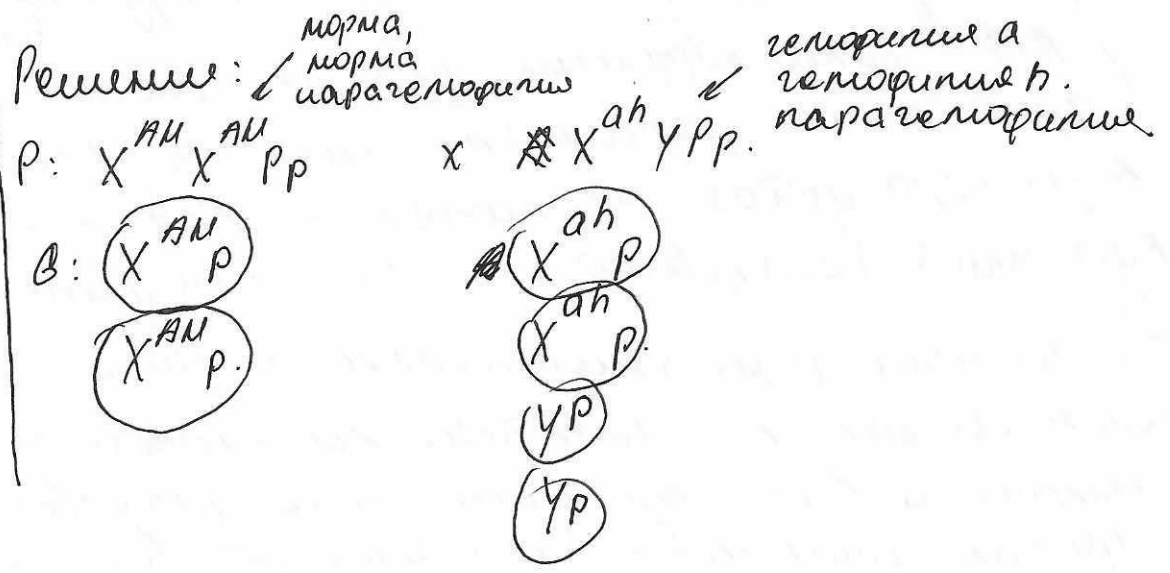 Решение: норма,
норма
парагемофилия
гемофилия a
гемофилия h.
парагемофилия
P: X^AH X^AH Pp x X^ah Y Pp.
G: X^AH P X^ah P
X^AH p. X^ah p.
Y P
Y p